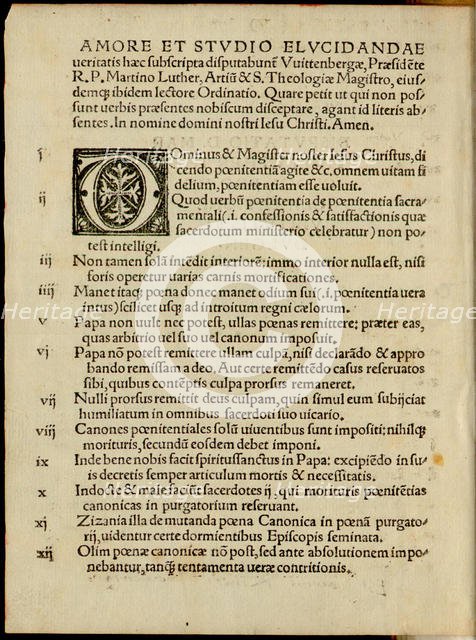 AMORE ET STVDIO ELVCIDANDAE
ueritatis hæc subscripta disputabunt̃ Vuittenbergæ, Præsidẽte
R. P. Martino Luther, Artiũ & S. Theologiæ Magistro, eius/
demq; ibidem lectore Ordinatio. Quare petit ut qui non pos/
sunt uerbis præsentes nobiscum disceptare, agant id literis ab/
sentes. In nomine domini nostri Iesu Christi. Amen.
i DOminus & Magister noster Iesus Christus, di
cendo pœnitentiã agite &c, omnem uitam fi
delium, pœnitentiam esse uoluit.
ij Quod uerbũ pœnitentia de pœnitentia sacra/
mentali (.i. confessionis & satisfactionis quæ
sacerdotum ministerio celebratur) non po/
test intelligi.
iij Non tamen solã intẽdit interiorẽ: immo interior nulla est, nisi
foris operetur uarias carnis mortificationes.
iiij Manet itaq; pœna donec manet odium sui (.i. pœnitentia uera
intus) scilicet usq; ad introitum regni cælorum.
v Papa non uult nec potest, ullas pœnas remittere: præter eas,
quas arbitrio uel suo uel canonum imposuit.
vj Papa nõ potest remittere ullam culpã, nisi declarãdo & appro
bando remissam a deo, Aut certe remittẽdo casus reseruatos
sibi, quibus contẽptis culpa prorsus remaneret.
vij Nulli prorsus remittit deus culpam, quin simul eum subijciat
humiliatum in omnibus sacerdoti suo uicario.
viij Canones pœnitentiales solũ uiuentibus sunt impositi; nihilq;
morituris, secundũ eosdem debet imponi.
ix Inde bene nobis facit spiritussanctus in Papa: excipiẽdo in su/
is decretis semper articulum mortis & necessitatis.
x Indocte & male faciũt sacerdotes ij, qui morituris pœnitẽtias
canonicas in purgatorium reseruant.
xj Zizania illa de mutanda pœna Canonica in pœnã purgato/
rij, uidentur certe dormientibus Episcopis seminata.
xij Olim pœnæ canonicæ nõ post, sed ante absolutionem impo/
nebantur, tanq; tentamenta ueræ contritionis.
Heritage
Heritage
Heritage
Heritage